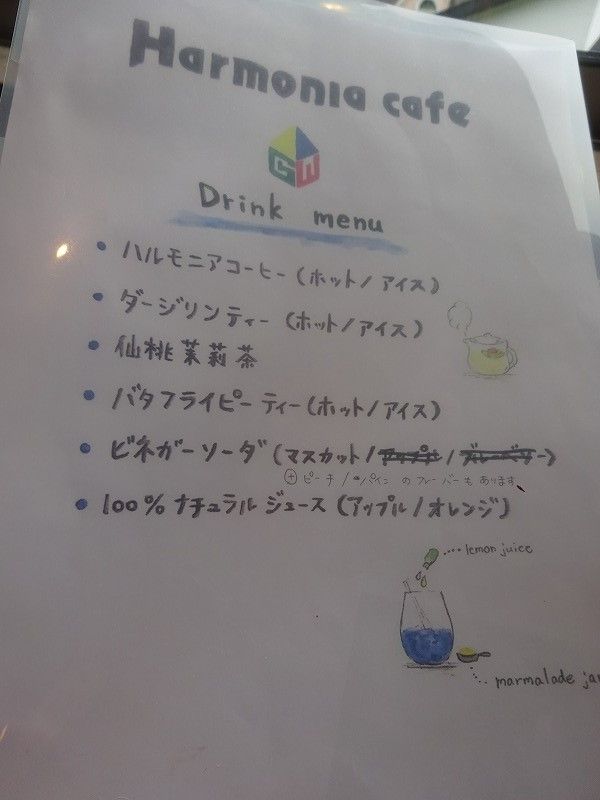 Harmonia cafe
GW
Drink menu
• ハルモニアコーヒー(ホット/アイス)
• ダージリンティー(ホット/アイス)
• 仙桃茉莉茶
• バタフライピーティー(ホット/アイス)
• ビネガーソーダ(マスカット/アップル/ブルーベリー)
⊕ピーチ/パイン のフレーバーもあります
• 100%ナチュラルジュース(アップル/オレンジ)
lemon juice
marmalade ja